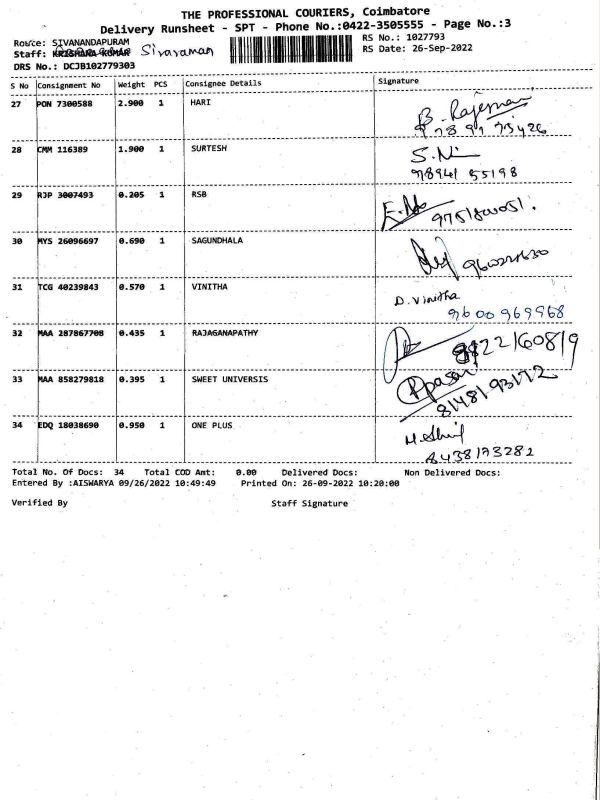 THE PROFESSIONAL COURIERS, Coimbatore
Delivery Runsheet - SPT - Phone No.:0422-3505555 - Page No.:3
Route: SIVANANDAPURAM
RS No.: 1027793
Staff: KRISHANA KUMAR Sivaraman
RS Date: 26-Sep-2022
DRS No.: DCJB102779303
S No Consignment No Weight PCS Consignee Details Signature
27 PON 7300588 2.900 1 HARI
28 CMM 116389 1.900 1 SURTESH
S.Ni
78941 55198
29 RJP 3007493 0.205 1 RSB
30 MYS 26096697 0.690 1 SAGUNDHALA
31 TCG 40239843 0.570 1 VINITHA
D. Vinitha
9600969968
32 MAA 287867708 0.435 1 RAJAGANAPATHY
33 MAA 858279818 0.395 1 SWEET UNIVERSIS
8148193172
34 EDQ 18038690 0.950 1 ONE PLUS
8438173282
Total No. Of Docs: 34 Total COD Amt: 0.00 Delivered Docs: Non Delivered Docs:
Entered By :AISWARYA 09/26/2022 10:49:49 Printed On: 26-09-2022 10:20:00
Verified By Staff Signature